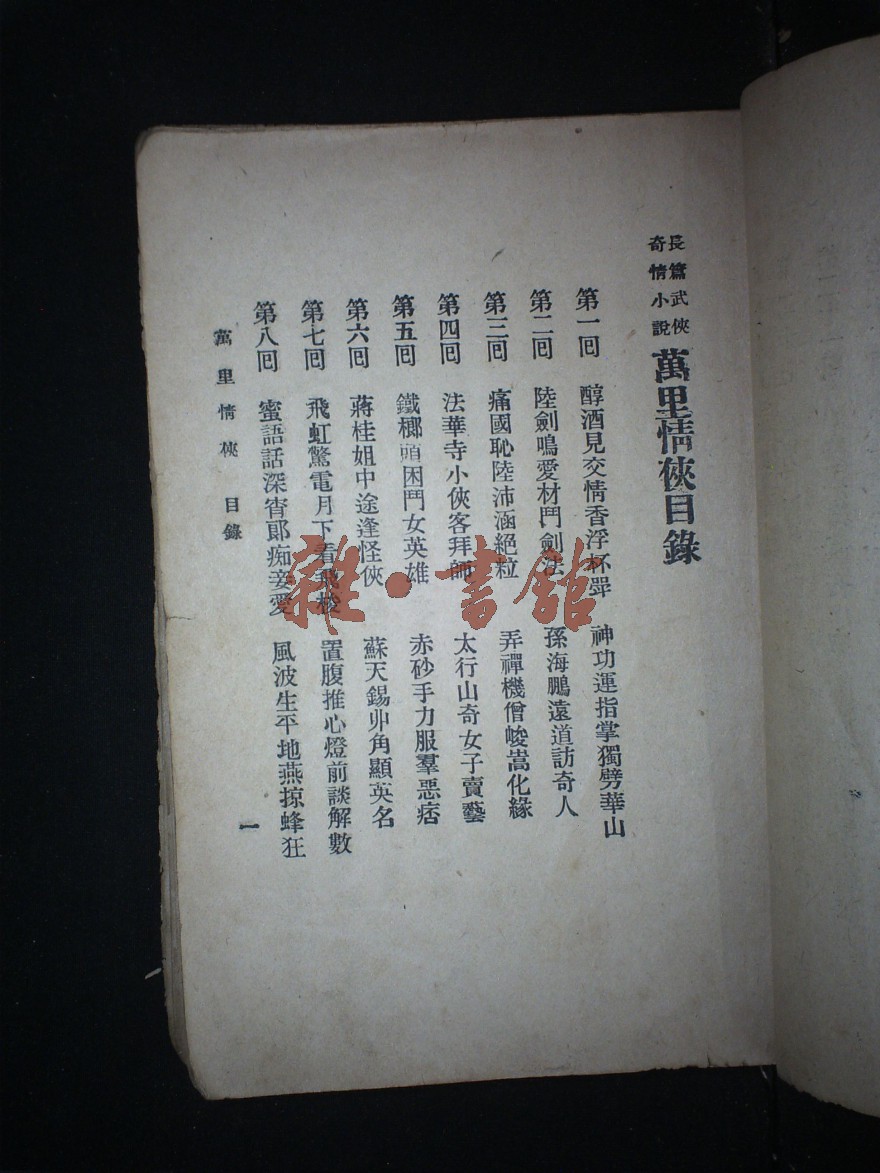 長篇武俠
奇情小說
萬里情俠目錄
第一回 醇酒見交情香浮杯斝 神功運指掌獨劈華山
第二回 陸劍鳴愛材鬥劍法 孫海鵬遠道訪奇人
第三回 痛國恥陸沛涵絕粒 弄禪機僧峻嵩化緣
第四回 法華寺小俠客拜師 太行山奇女子賣藝
第五回 鐵榔頭困鬥女英雄 赤砂手力服羣惡痞
第六回 蔣桂姐中途逢怪俠 蘇天錫丱角顯英名
第七回 飛虹驚電月下看飛梭 置腹推心燈前談解數
第八回 蜜語話深宵郎痴妾愛 風波生平地燕掠蜂狂
萬里情俠 目錄
一
雜·書館